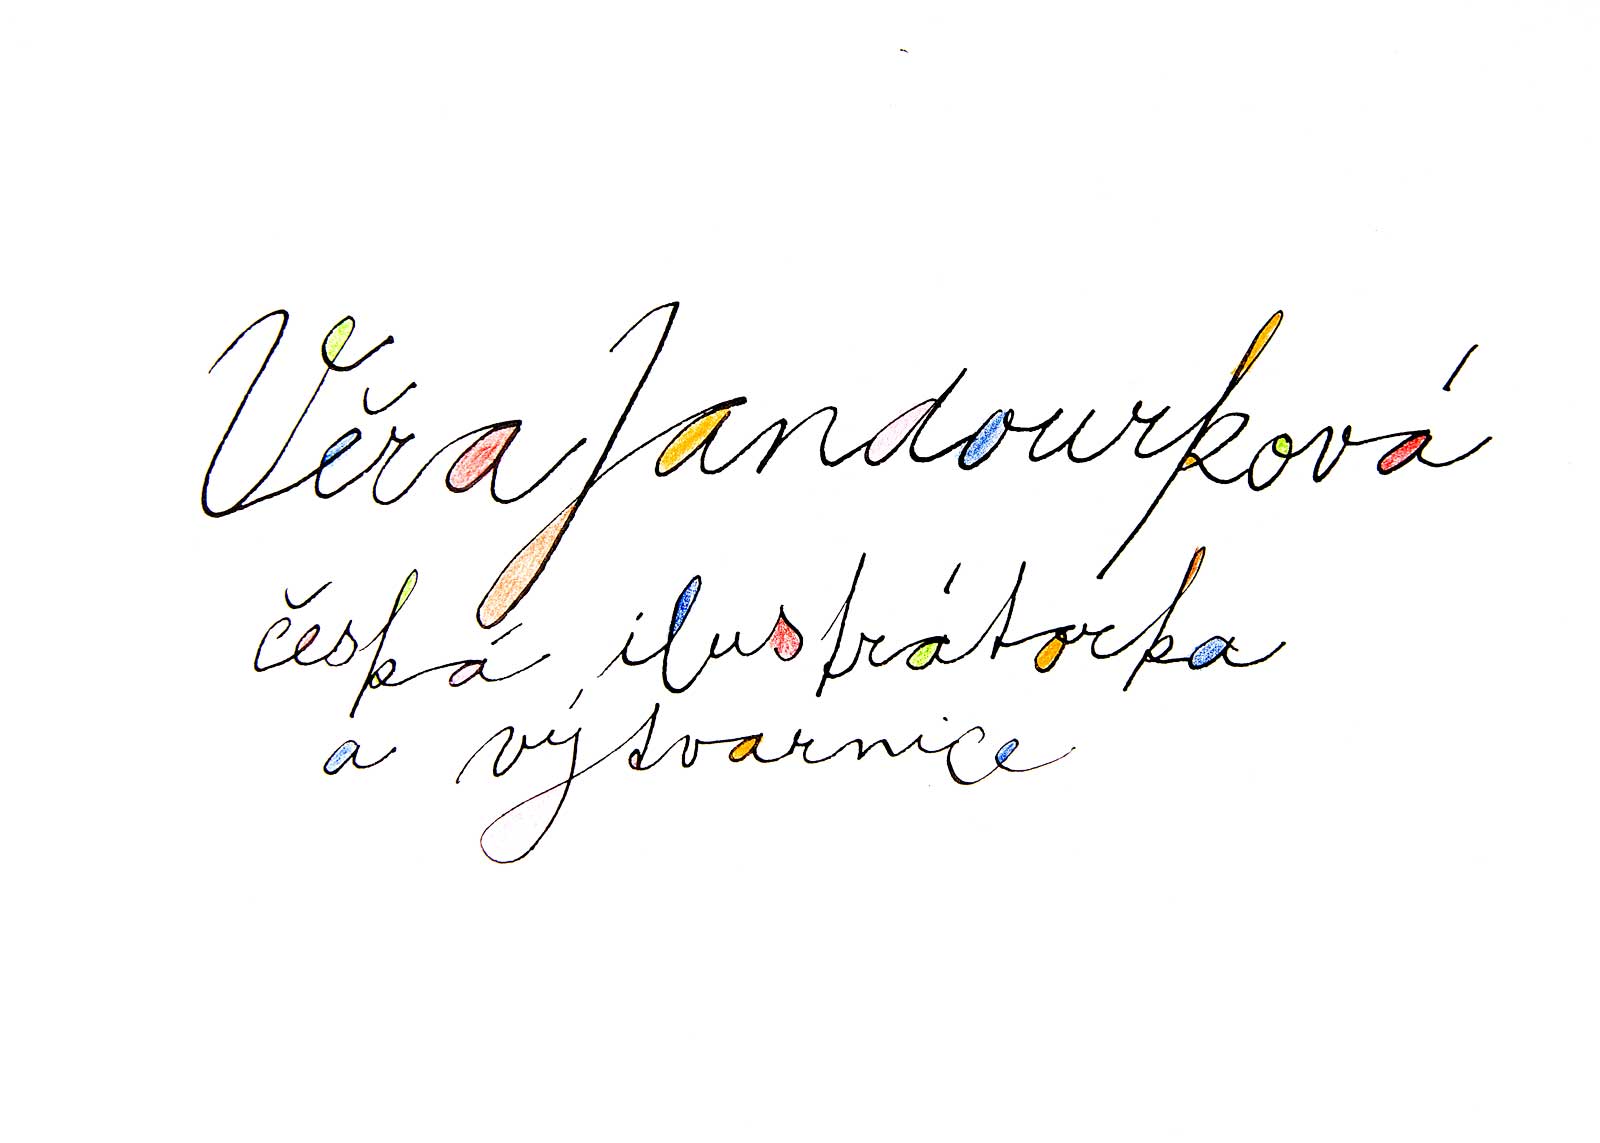 Věra Jandourková
česká ilustrátorka
a výtvarnice